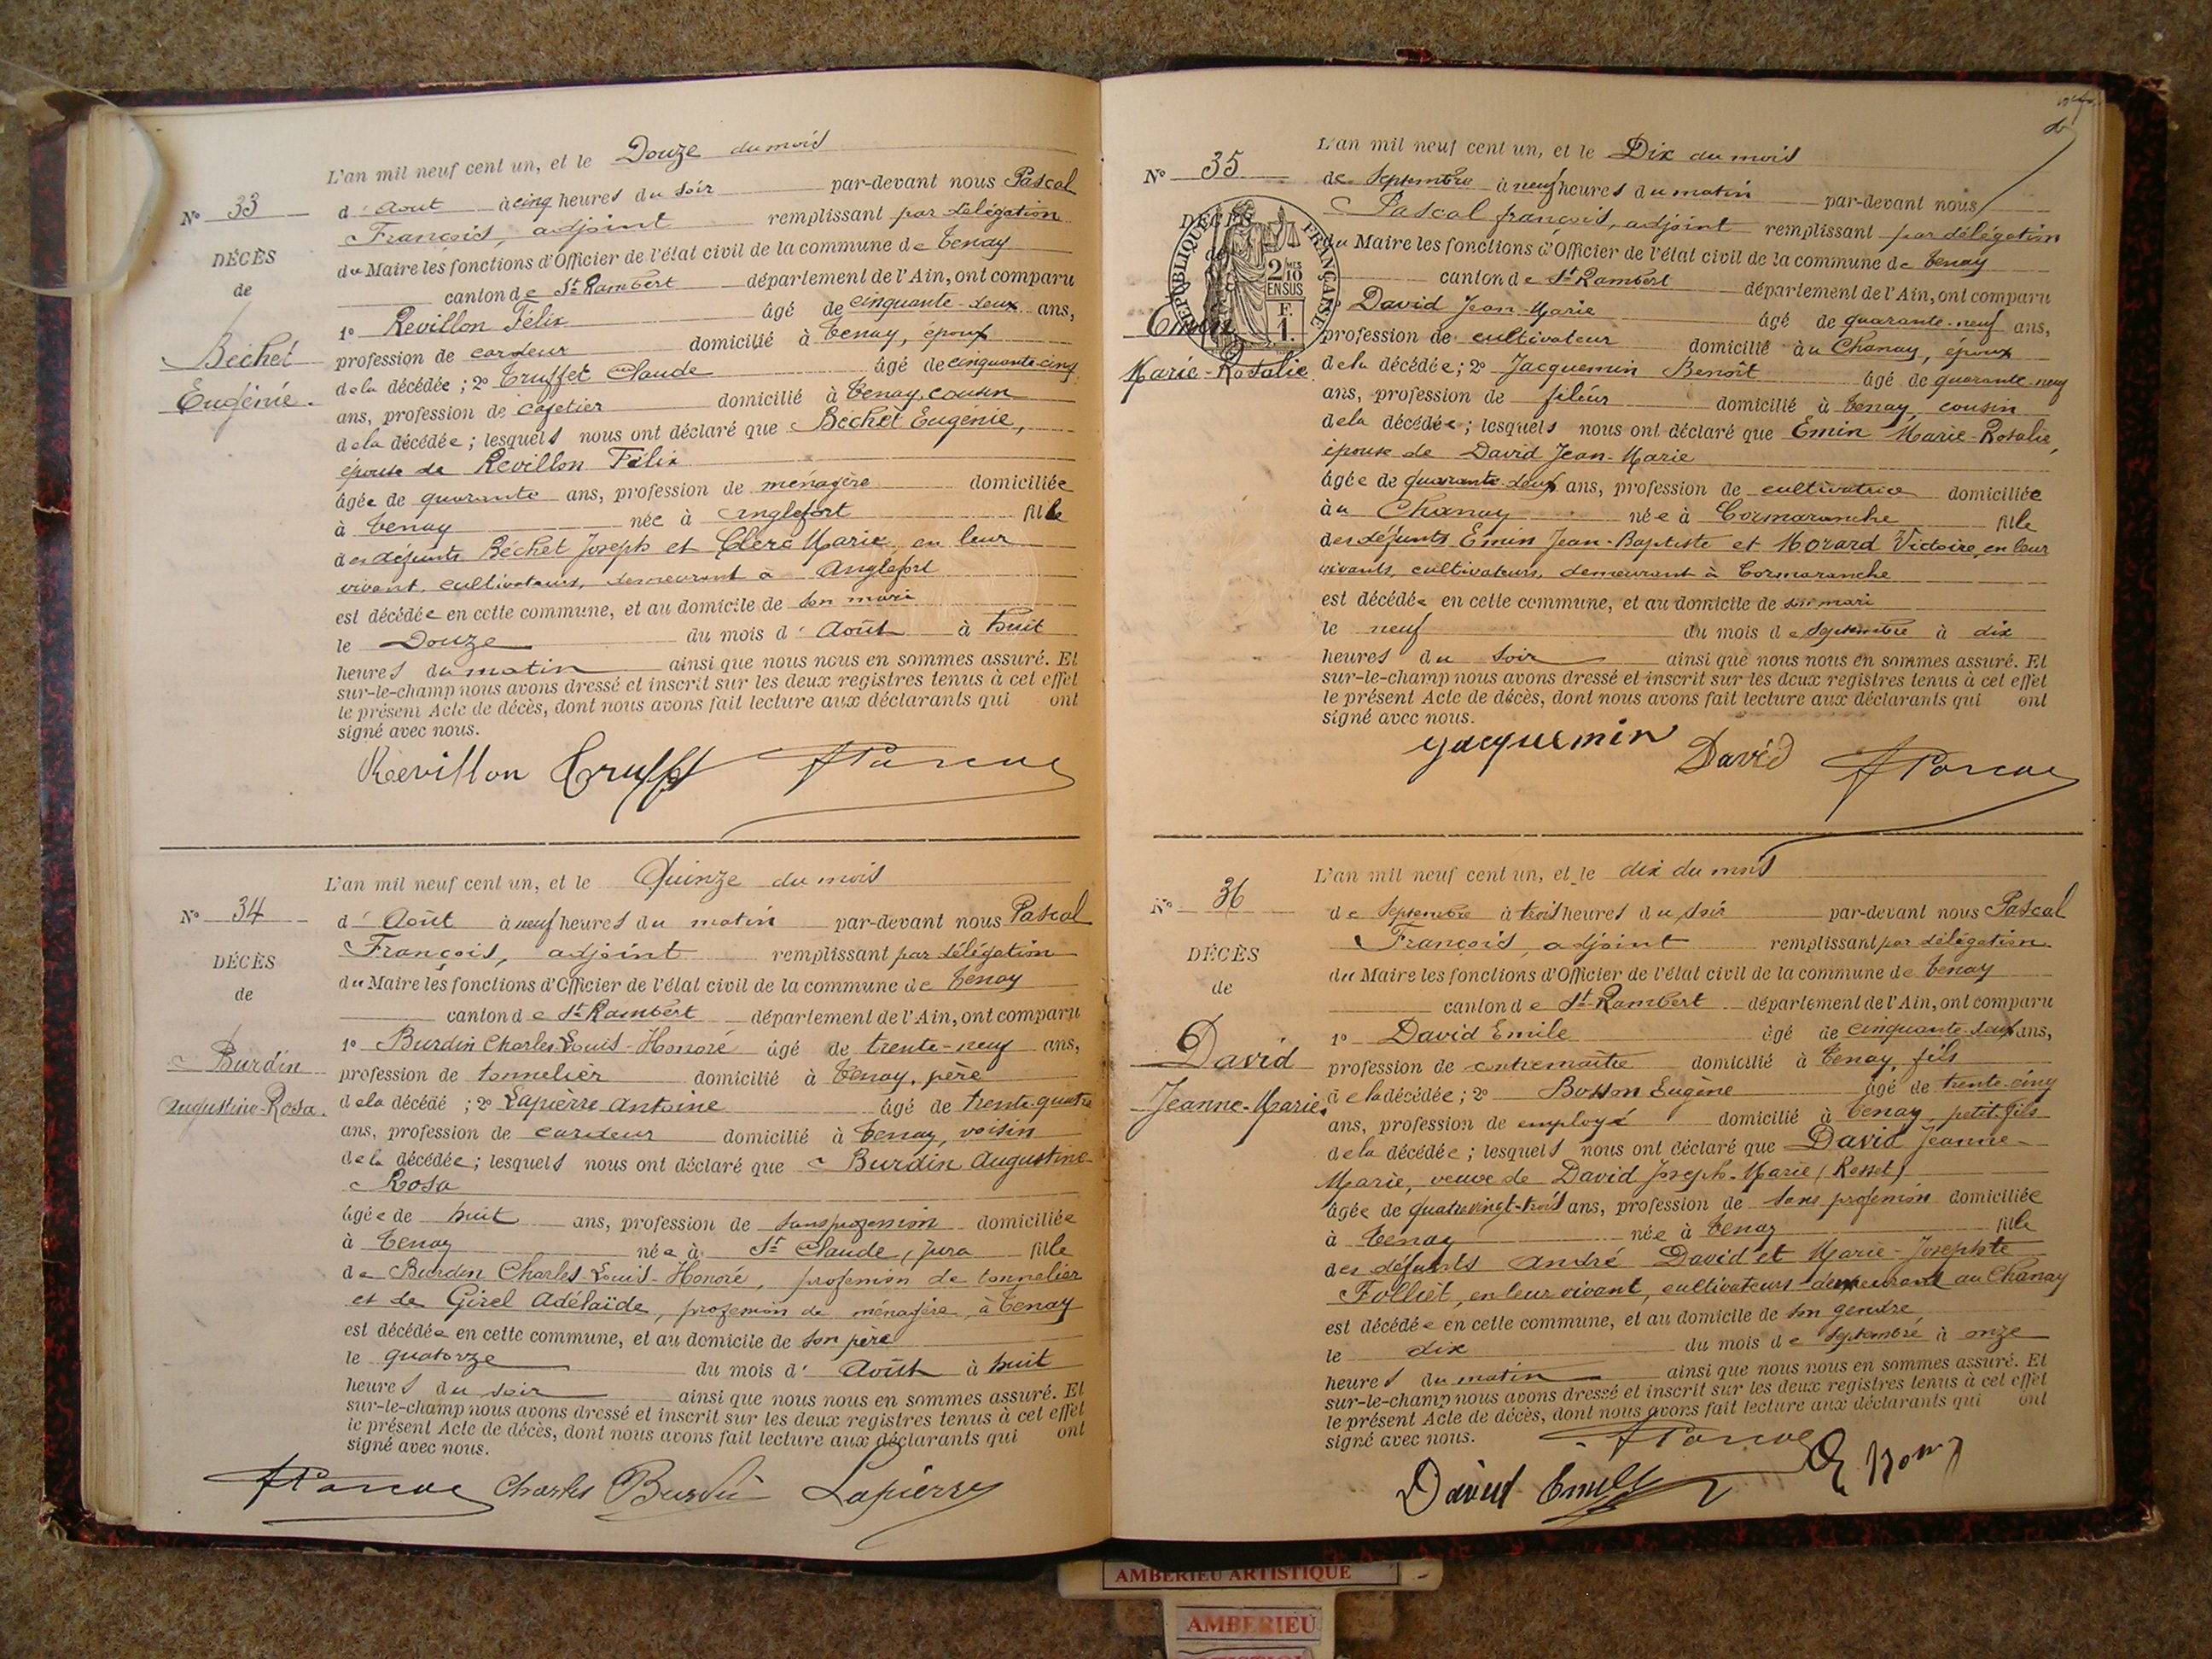 L'an mil neuf cent un, et le Douze du mois
N° 33
d'Aout à cinq heures du soir par-devant nous Pascal
François, adjoint remplissant par délégation
DÉCÈS
du Maire les fonctions d'Officier de l'état civil de la commune de Tenay
de
canton de St Rambert département de l'Ain, ont comparu
1° Revillon Félix âgé de cinquante-deux ans,
Béchet
profession de cardeur domicilié à Tenay, époux
de la décédée ; 2° Truffet Claude âgé de cinquante-cinq
Eugénie.
ans, profession de cafetier domicilié à Tenay, cousin
de la décédée ; lesquels nous ont déclaré que Béchet Eugénie,
épouse de Revillon Félix
âgée de quarante ans, profession de ménagère domiciliée
à Tenay née à Anglefort fille
des défunts Béchet Joseph et Clerc Marie, en leur
vivant, cultivateurs, demeurant à Anglefort
est décédée en cette commune, et au domicile de son mari
le Douze du mois d'Août à huit
heures du matin ainsi que nous nous en sommes assuré. Et
sur-le-champ nous avons dressé et inscrit sur les deux registres tenus à cet effet
le présent Acte de décès, dont nous avons fait lecture aux déclarants qui ont
signé avec nous.
Revillon Truffet FPascal
L'an mil neuf cent un, et le Quinze du mois
N° 34
d'Août à neuf heures du matin par-devant nous Pascal
François, adjoint remplissant par délégation
DÉCÈS
du Maire les fonctions d'Officier de l'état civil de la commune de Tenay
de
canton de St Rambert département de l'Ain, ont comparu
1° Burdin Charles-Louis-Honoré âgé de trente-neuf ans,
Burdin
profession de tonnelier domicilié à Tenay, père
Augustine-Rosa.
de la décédé ; 2° Lapierre Antoine âgé de trente-quatre
ans, profession de cardeur domicilié à Tenay, voisin
de la décédée ; lesquels nous ont déclaré que Burdin Augustine-
Rosa
âgée de huit ans, profession de sans profession domiciliée
à Tenay née à St Claude, Jura fille
de Burdin Charles-Louis-Honoré, profession de tonnelier
et de Girel Adélaïde, profession de ménagère, à Tenay
est décédée en cette commune, et au domicile de son père
le quatorze du mois d'Août à huit
heures du soir ainsi que nous nous en sommes assuré. Et
sur-le-champ nous avons dressé et inscrit sur les deux registres tenus à cet effet
le présent Acte de décès, dont nous avons fait lecture aux déclarants qui ont
signé avec nous.
FPascal Charles Burdin Lapierre
L'an mil neuf cent un, et le Dix du mois
N° 35
de Septembre à neuf heures du matin par-devant nous
Pascal françois, adjoint remplissant par délégation
DÉCÈS
de
RÉPUBLIQUE FRANÇAISE
2/10 MES EN SUS
F. 1.
du Maire les fonctions d'Officier de l'état civil de la commune de Tenay
canton de St Rambert département de l'Ain, ont comparu
David Jean-Marie âgé de quarante-neuf ans,
Emin
profession de cultivateur domicilié au Chanay, époux
Marie-Rosalie
de la décédée ; 2° Jacquemin Benoît âgé de quarante neuf
ans, profession de fileur domicilié à Tenay, cousin
de la décédée ; lesquels nous ont déclaré que Emin Marie-Rosalie,
épouse de David Jean-Marie
âgée de quarante-deux ans, profession de cultivatrice domiciliée
au Chanay née à Cormaranche fille
des défunts Emin Jean-Baptiste et Morard Victoire, en leur
vivants, cultivateurs, demeurant à Cormaranche
est décédée en cette commune, et au domicile de son mari
le neuf du mois de Septembre à dix
heures du soir ainsi que nous nous en sommes assuré. Et
sur-le-champ nous avons dressé et inscrit sur les deux registres tenus à cet effet
le présent Acte de décès, dont nous avons fait lecture aux déclarants qui ont
signé avec nous.
Jacquemin David FPascal
L'an mil neuf cent un, et le dix du mois
N° 36
de Septembre à trois heures du soir par-devant nous Pascal
François, adjoint remplissant par délégation
DÉCÈS
du Maire les fonctions d'Officier de l'état civil de la commune de Tenay
de
canton de St-Rambert département de l'Ain, ont comparu
1° David Emile âgé de cinquante-deux ans,
David
profession de contremaître domicilié à Tenay, fils
Jeanne-Marie.
de la décédée ; 2° Bosson Eugène âgé de trente-cinq
ans, profession de employé domicilié à Tenay, petit-fils
de la décédée ; lesquels nous ont déclaré que David Jeanne-
Marie, veuve de David Joseph-Marie (Rosset)
âgée de quatre vingt-trois ans, profession de sans profession domiciliée
à Tenay née à Tenay fille
des défunts André David et Marie-Josephte
Folliet, en leur vivant, cultivateurs demeurant au Chanay
est décédée en cette commune, et au domicile de son gendre
le dix du mois de Septembre à onze
heures du matin ainsi que nous nous en sommes assuré. Et
sur-le-champ nous avons dressé et inscrit sur les deux registres tenus à cet effet
le présent Acte de décès, dont nous avons fait lecture aux déclarants qui ont
signé avec nous. FPascal
David Emile
AMBERIEU ARTISTIQUE
AMBERIEU